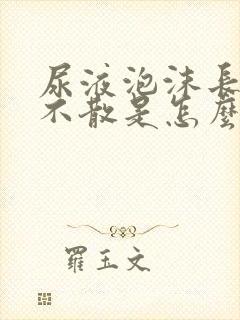 尿液泡沫長
不散是怎麼
羅玉文